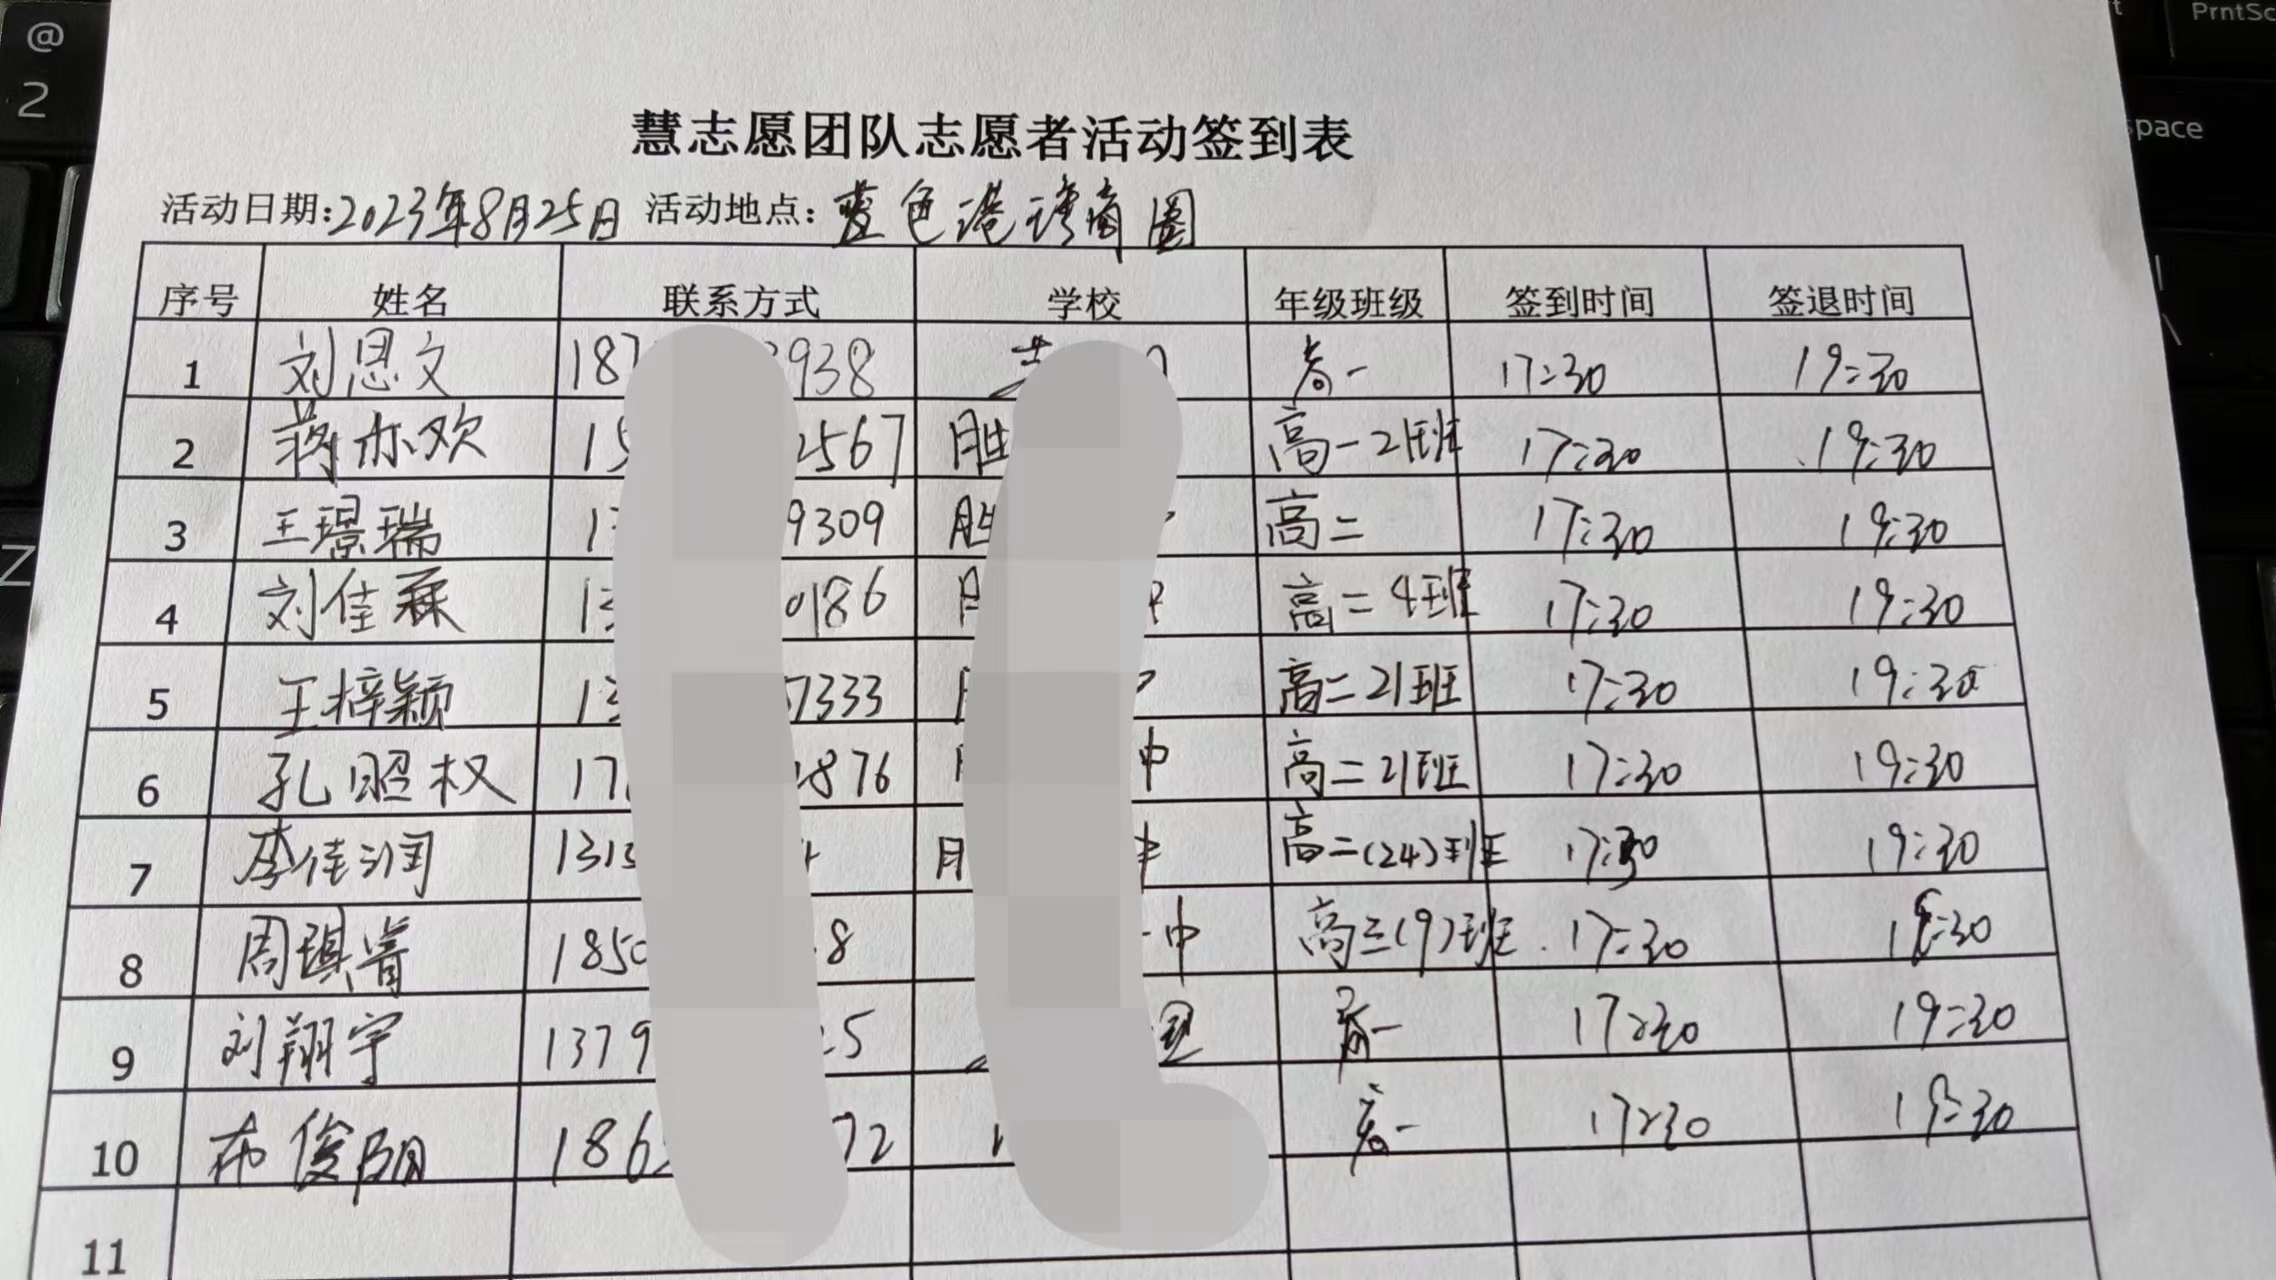 @
2
PrntSc
space
Z
慧志愿团队志愿者活动签到表
活动日期:2023年8月25日 活动地点:蓝色港湾商圈
序号 姓名 联系方式 学校 年级班级 签到时间 签退时间
1 刘恩文 187 938 高一 17:30 19:30
2 蒋亦欢 15 2567 胜 高一21班 17:30 19:30
3 王璟瑞 13 9309 胜 高二 17:30 19:30
4 刘佳霖 13 0186 高二4班 17:30 19:30
5 王梓颖 13 7333 高二21班 17:30 19:30
6 孔昭权 17 876 中 高二21班 17:30 19:30
7 李佳润 1313 高二(24)班 17:30 19:30
8 周琪睿 1850 8 中 高三(9)班 17:30 19:30
9 刘翔宇 1379 25 高一 17:30 19:30
10 布俊阴 186 72 高一 17:30 19:30
11